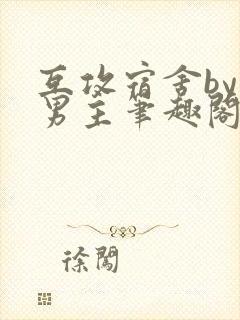 互攻宿舍by
男主笔趣阁
徐闯